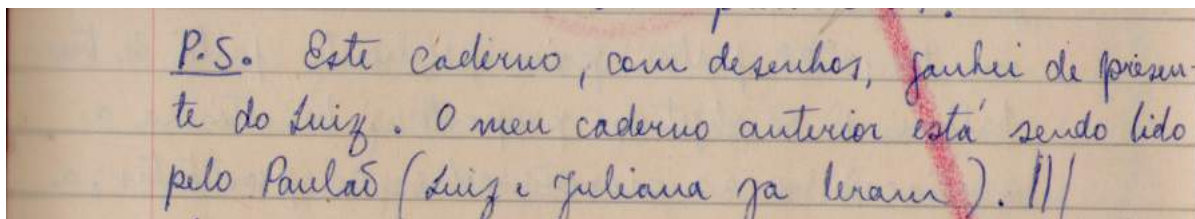 P.S. Este caderno, com desenhos, ganhei de presen-
te do Luiz. O meu caderno anterior está sendo lido
pelo Paulão (Luiz e Juliana ja leram). |||